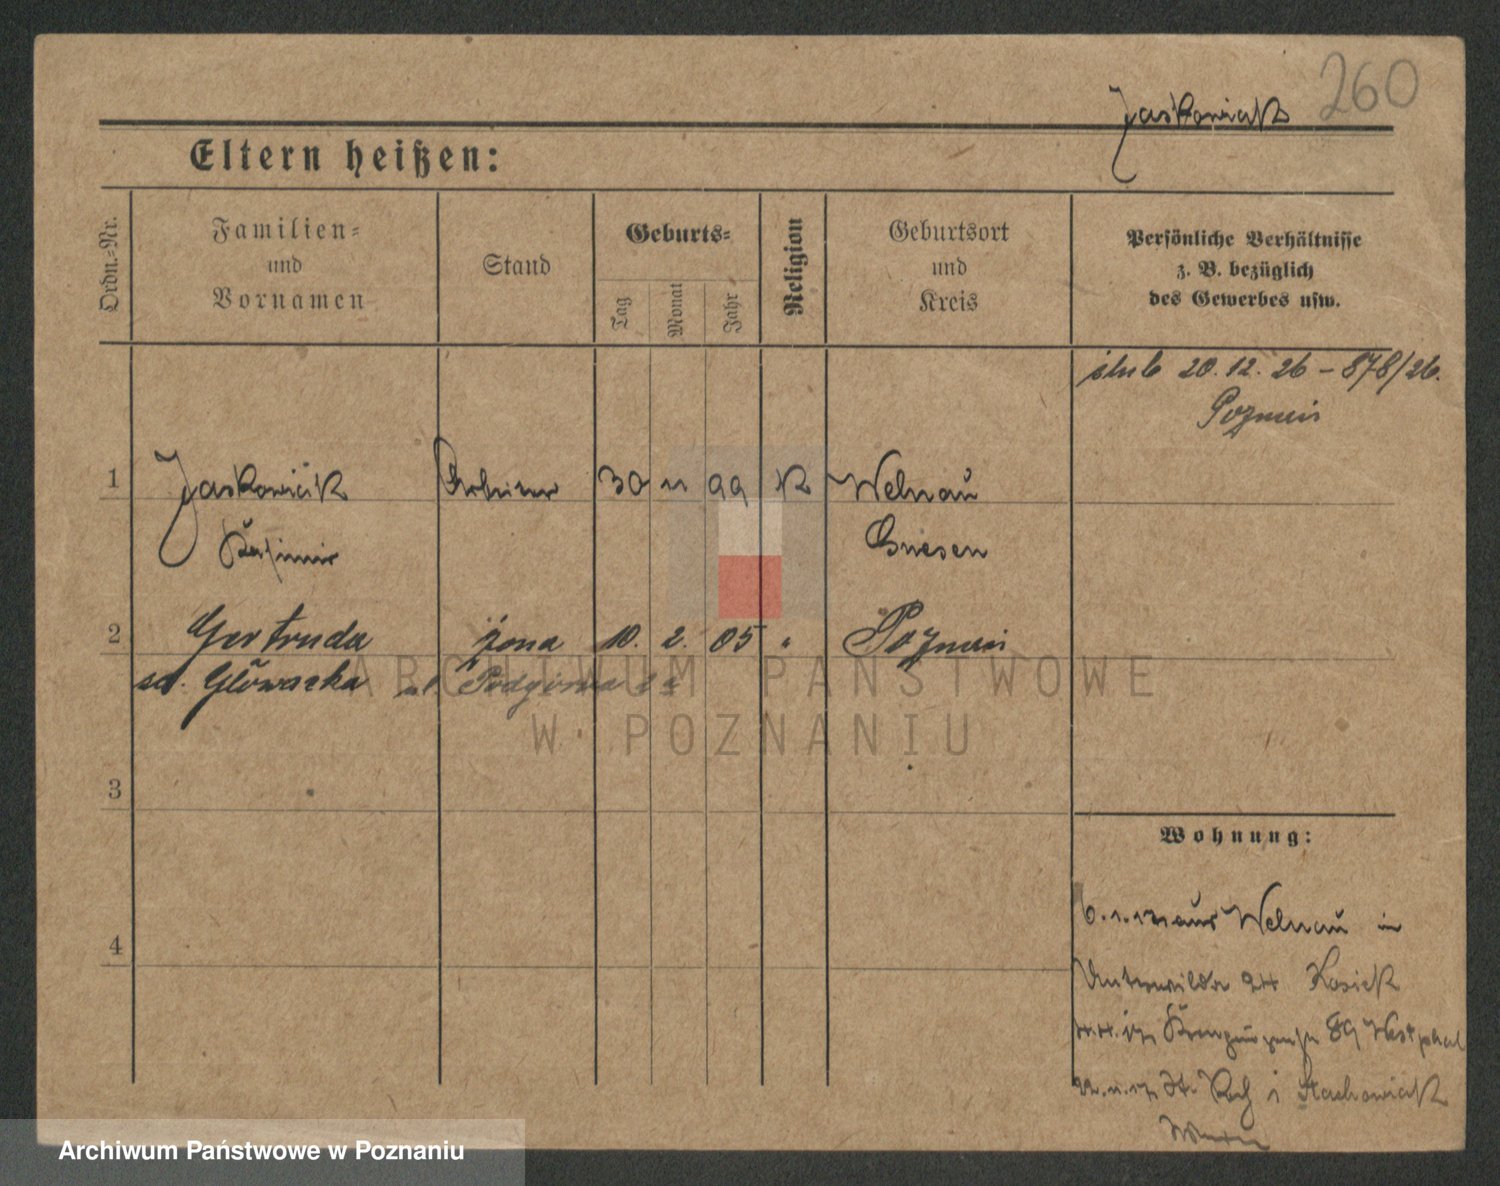 260
Jaskowiak
Eltern heißen:
Ordn.-Nr.
Familien-
und
Vornamen
Stand
Geburts-
Tag
Monat
Jahr
Religion
Geburtsort
und
Kreis
Persönliche Verhältnisse
z. B. bezüglich
des Gewerbes usw.
ślub 20.12.26 – 878/26.
Poznań
1 Jaskowiak Arbeiter 30 11 99 K Welnau
Kasimir Gnesen
2 Gertruda żona 10. 2. 05 " Poznań
Głowacka Podgórna
ARCHIWUM PAŃSTWOWE
W POZNANIU
3
Wohnung:
4
aus Welnau in
Unterwilda Kosick
89 Westphal
St. Roch Stachowiak
Archiwum Państwowe w Poznaniu